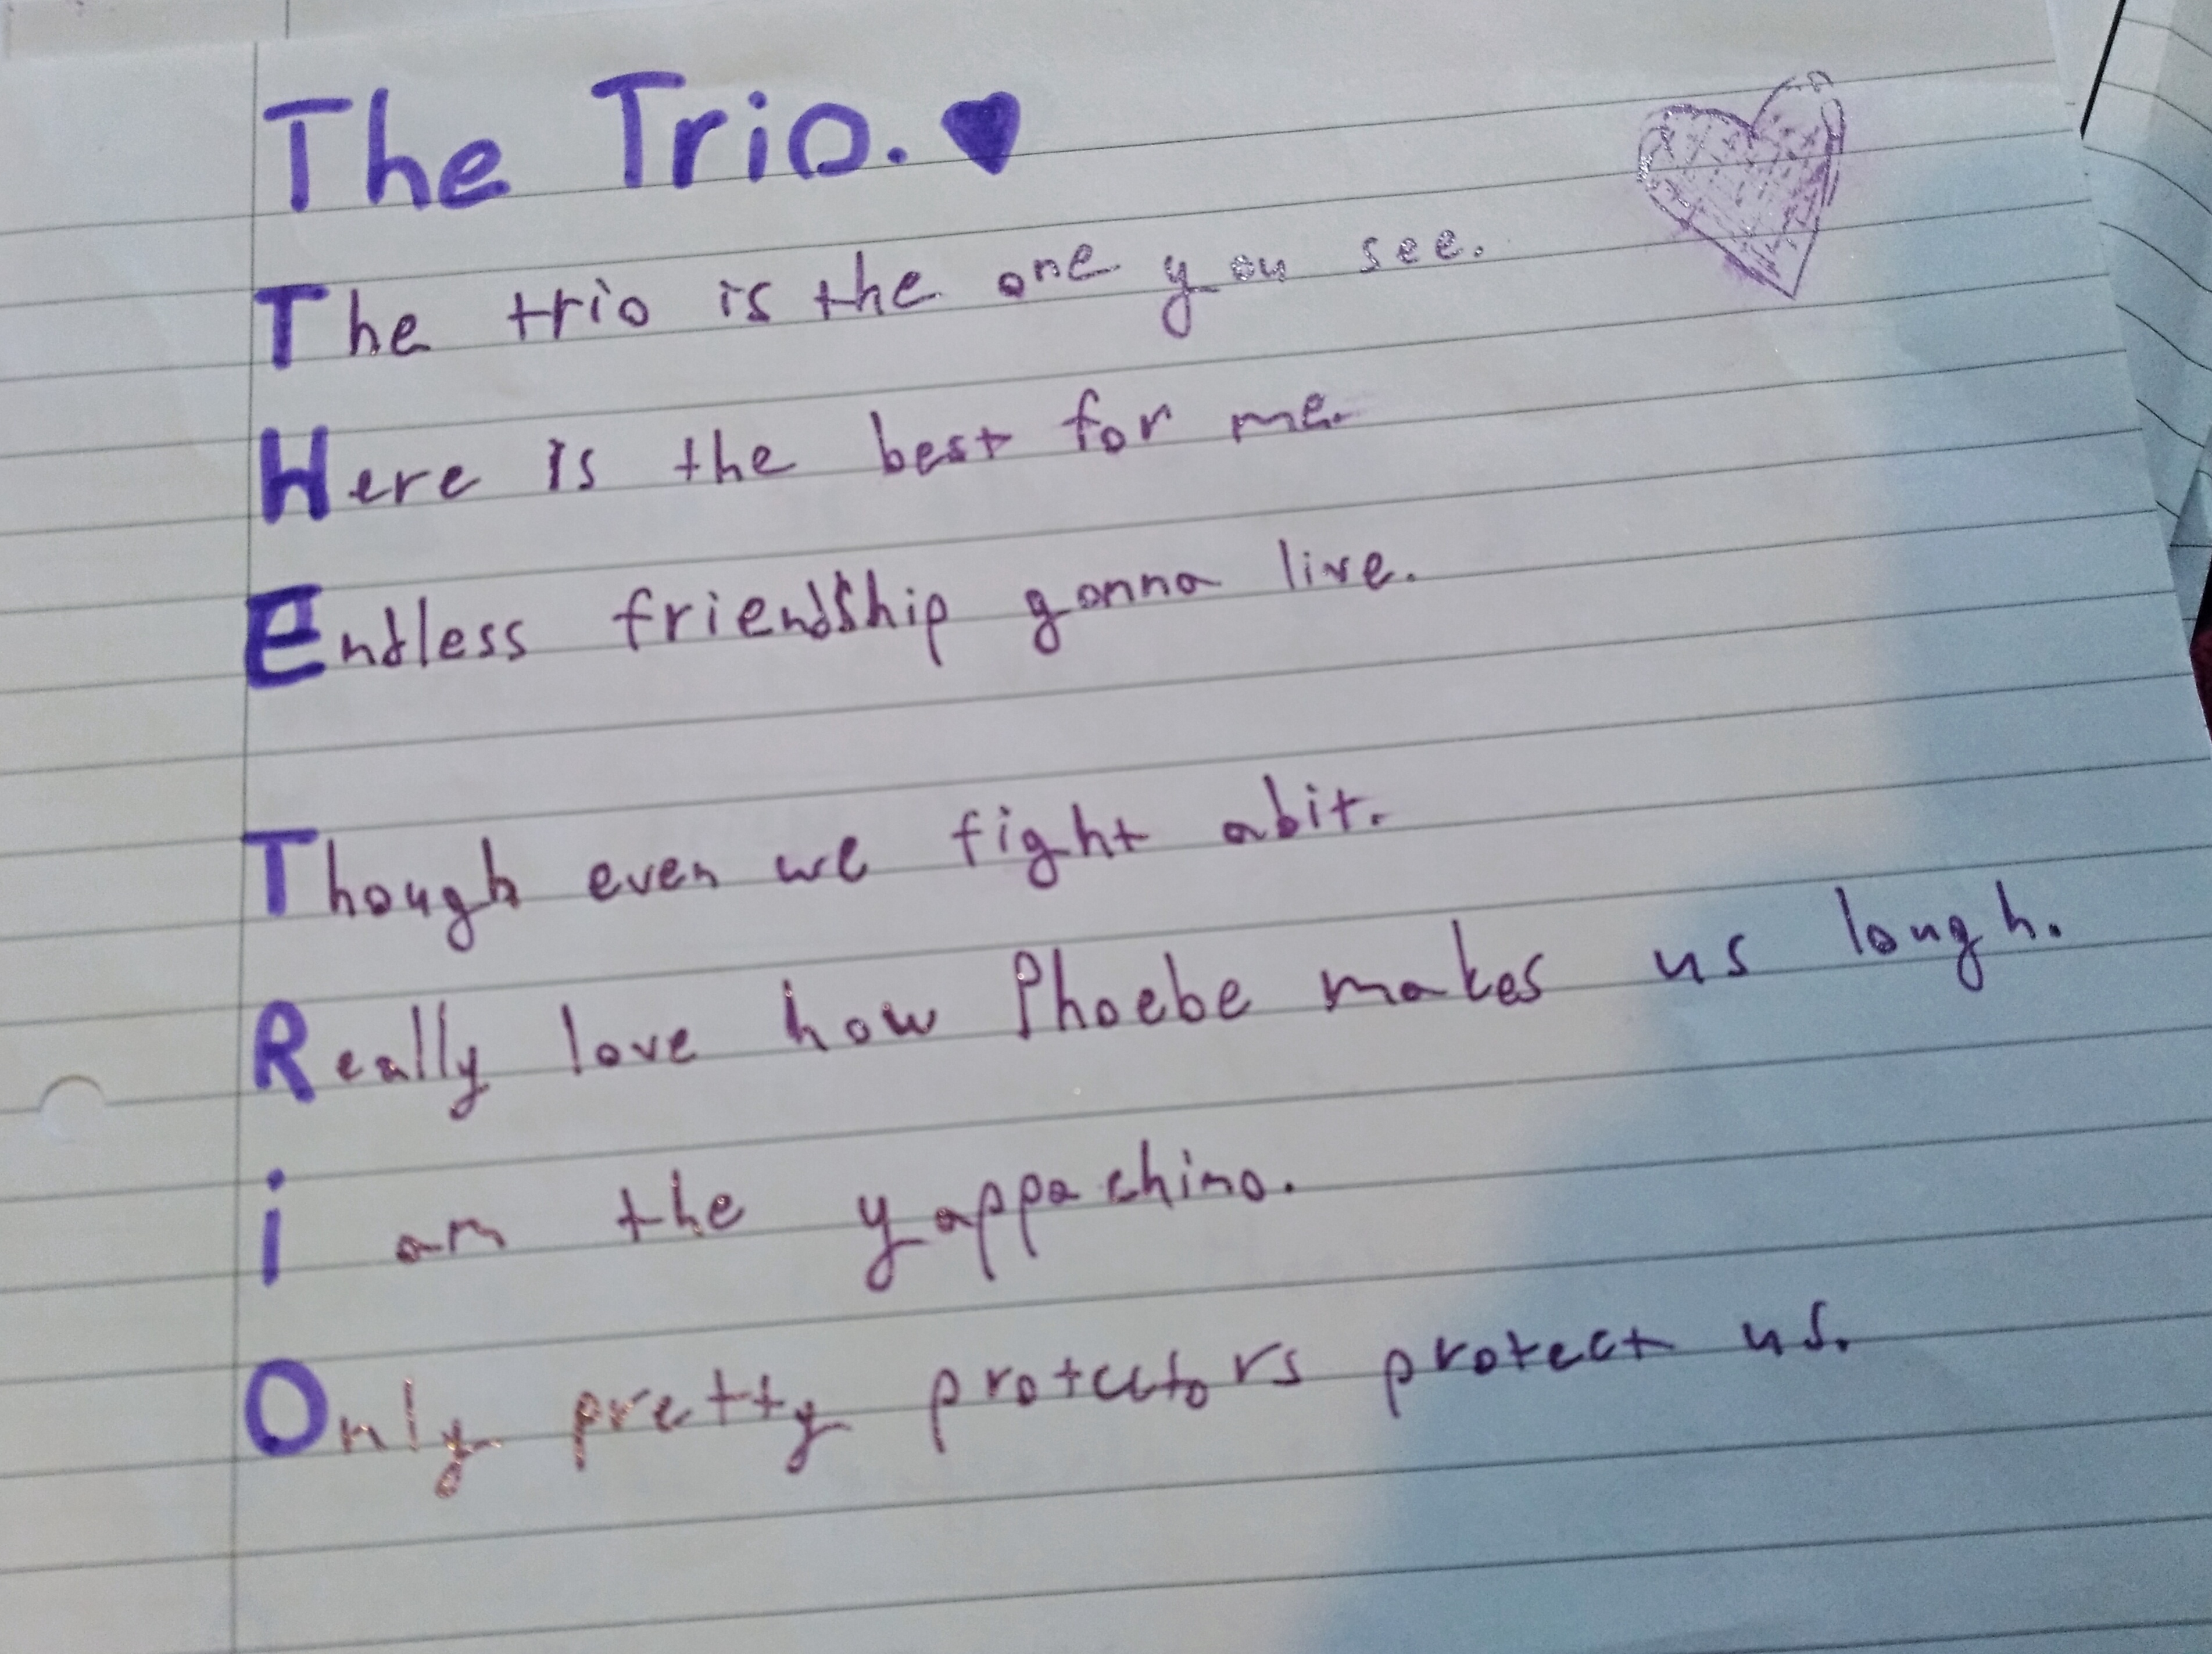 The Trio.
The trio is the one you see.
Here is the best for me.
Endless friendship gonna live.
Though even we fight abit.
Really love how Phoebe makes us lough.
i am the yappachino.
Only pretty protectors protect us.